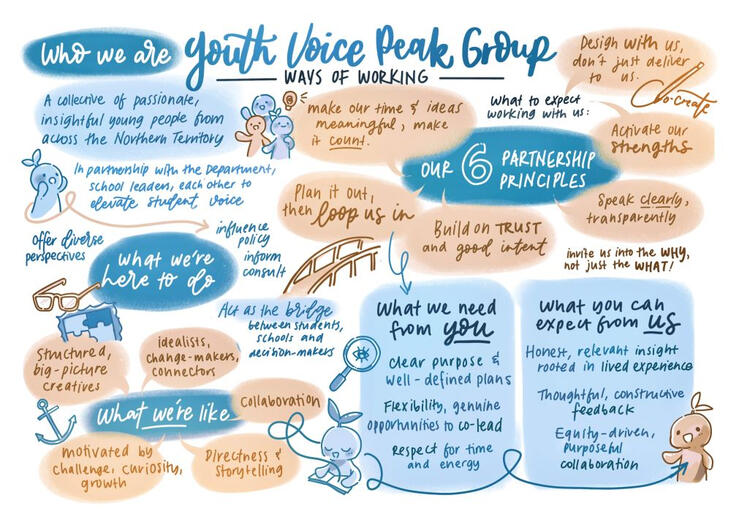 Who we are
Youth Voice Peak Group
WAYS OF WORKING
A collective of passionate,
insightful young people from
across the Northern Territory
In partnership with the Department,
school leaders, each other to
elevate student voice
offer diverse
perspectives
influence
policy
inform
consult
what we're
here to do
Act as the bridge
between students,
schools and
decision-makers
Structured,
big-picture
creatives
idealists,
change-makers,
connectors
Collaboration
What we're like
motivated by
challenge, curiosity,
growth
Directness &
Storytelling
make our time & ideas
meaningful, make
it count.
Design with us,
don't just deliver
to us.
co-create
what to expect
working with us:
OUR 6 PARTNERSHIP
PRINCIPLES
Activate our
strengths
Plan it out,
then loop us in
Build on TRUST
and good intent
Speak clearly,
transparently
invite us into the WHY,
not just the WHAT!
What we need
from you
Clear purpose &
well-defined plans
Flexibility, genuine
opportunities to co-lead
Respect for time
and energy
What you can
expect from us
Honest, relevant insight
rooted in lived experience
Thoughtful, constructive
feedback
Equity-driven,
purposeful
collaboration